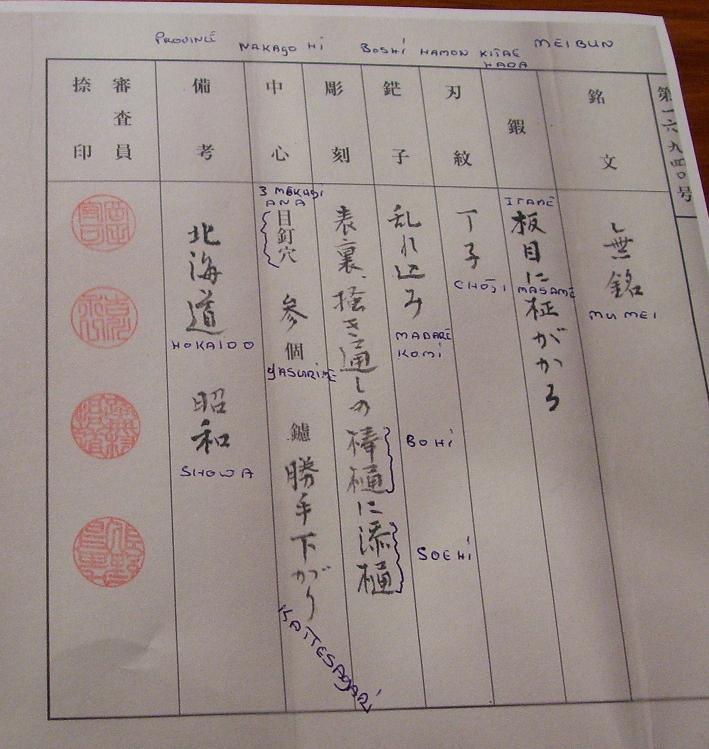 PROVINCE NAKAGO HI BOSHI HAMON KITAE MEIBUN
HADA
第一六九四〇号
銘文
無銘
MUMEI
鍜
ITAME
板目に柾がかる
MASAME
刃紋
丁子
CHOJI
鋩子
乱れ込み
MADARE
KOMI
彫刻
表裏、掻き通しの棒樋に添樋
BOHI
SOEHI
中心
3 MEKUGI
ANA
目釘穴 参個
YASURIME
鑢 勝手下がり
KATTESAGARI
備考
北海道
HOKAIDO
昭和
SHOWA
審査員
捺印